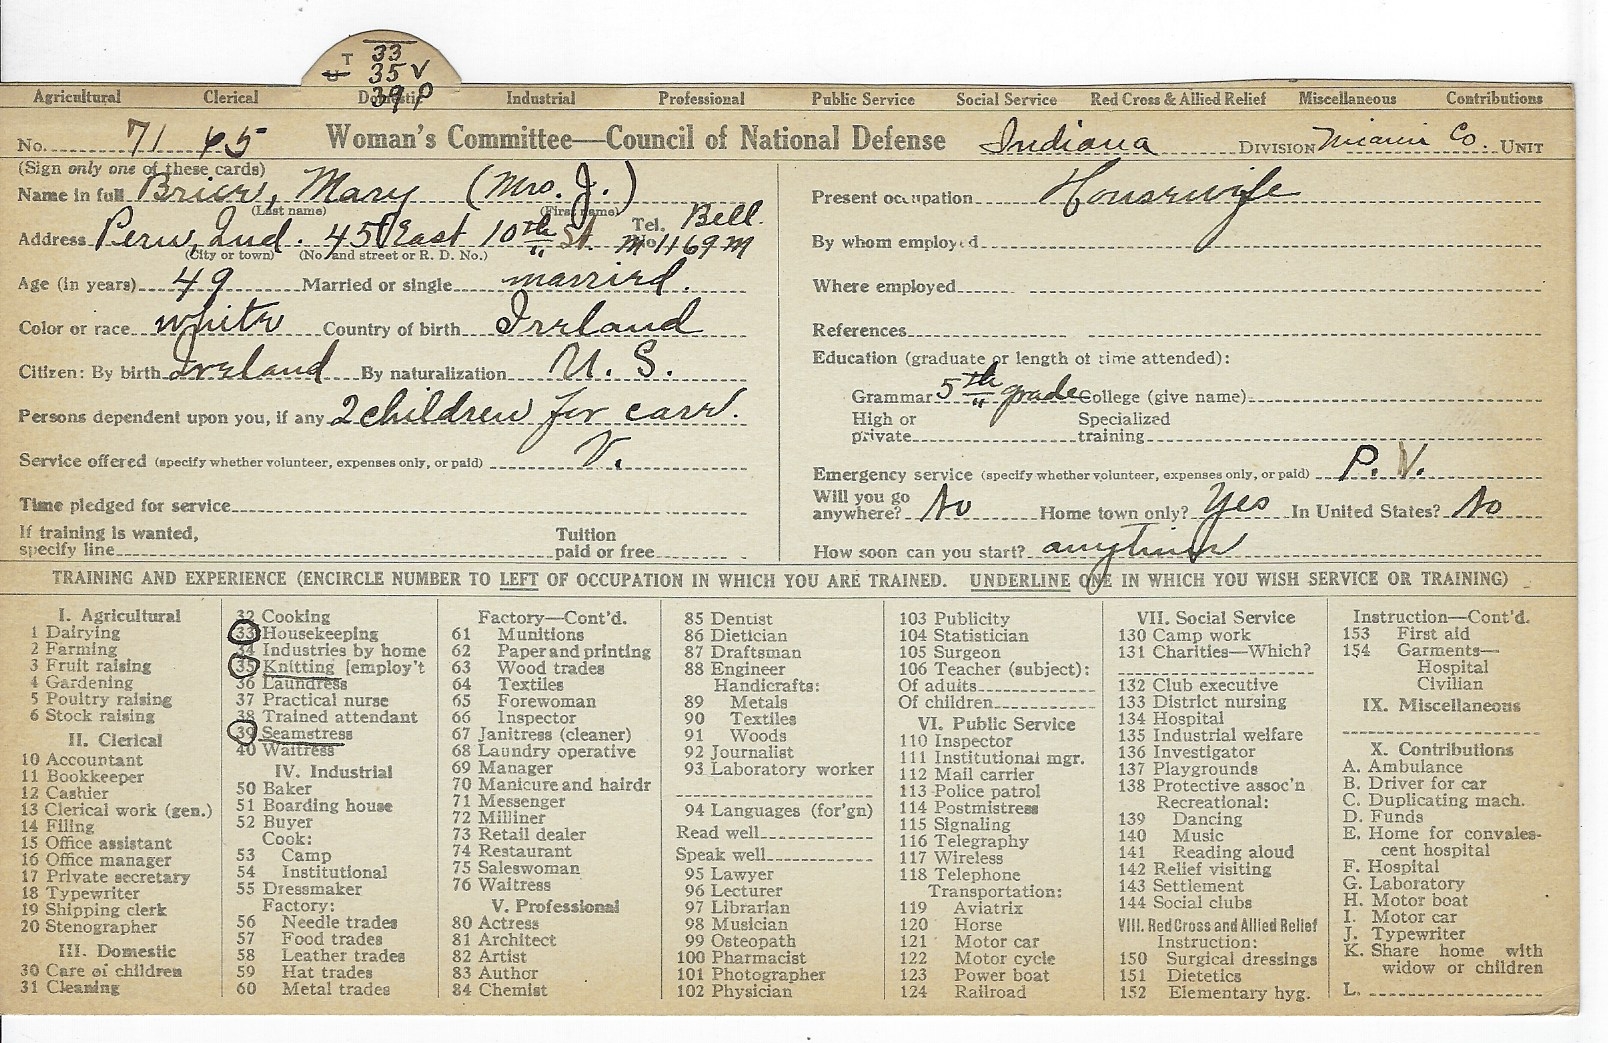 T 33
U 35 V
39 P
Agricultural Clerical Domestic Industrial Professional Public Service Social Service Red Cross & Allied Relief Miscellaneous Contributions
No. 71 65 Woman's Committee—Council of National Defense Indiana DIVISION Miami Co. UNIT
(Sign only one of these cards)
Name in full Brier, Mary (Mrs. J.)
(Last name) (First name)
Address Peru, Ind. 45 East 10th St. Tel. No. Bell. M 1169 M
(City or town) (No. and street or R. D. No.)
Age (in years) 49 Married or single married.
Color or race white Country of birth Ireland
Citizen: By birth Ireland By naturalization U. S.
Persons dependent upon you, if any 2 children for care.
Service offered (specify whether volunteer, expenses only, or paid) V.
Time pledged for service
If training is wanted, specify line Tuition paid or free
Present occupation Housewife
By whom employed
Where employed
References
Education (graduate or length of time attended):
Grammar 5th grade College (give name)
High or private Specialized training
Emergency service (specify whether volunteer, expenses only, or paid) P. V.
Will you go anywhere? No Home town only? Yes In United States? No
How soon can you start? anytime
TRAINING AND EXPERIENCE (ENCIRCLE NUMBER TO LEFT OF OCCUPATION IN WHICH YOU ARE TRAINED. UNDERLINE ONE IN WHICH YOU WISH SERVICE OR TRAINING)
I. Agricultural
1 Dairying
2 Farming
3 Fruit raising
4 Gardening
5 Poultry raising
6 Stock raising
II. Clerical
10 Accountant
11 Bookkeeper
12 Cashier
13 Clerical work (gen.)
14 Filing
15 Office assistant
16 Office manager
17 Private secretary
18 Typewriter
19 Shipping clerk
20 Stenographer
III. Domestic
30 Care of children
31 Cleaning
32 Cooking
33 Housekeeping
34 Industries by home
35 Knitting [employ't
36 Laundress
37 Practical nurse
38 Trained attendant
39 Seamstress
40 Waitress
IV. Industrial
50 Baker
51 Boarding house
52 Buyer
Cook:
53 Camp
54 Institutional
55 Dressmaker
Factory:
56 Needle trades
57 Food trades
58 Leather trades
59 Hat trades
60 Metal trades
Factory—Cont'd.
61 Munitions
62 Paper and printing
63 Wood trades
64 Textiles
65 Forewoman
66 Inspector
67 Janitress (cleaner)
68 Laundry operative
69 Manager
70 Manicure and hairdr
71 Messenger
72 Milliner
73 Retail dealer
74 Restaurant
75 Saleswoman
76 Waitress
V. Professional
80 Actress
81 Architect
82 Artist
83 Author
84 Chemist
85 Dentist
86 Dietician
87 Draftsman
88 Engineer
Handicrafts:
89 Metals
90 Textiles
91 Woods
92 Journalist
93 Laboratory worker
94 Languages (for'gn)
Read well
Speak well
95 Lawyer
96 Lecturer
97 Librarian
98 Musician
99 Osteopath
100 Pharmacist
101 Photographer
102 Physician
103 Publicity
104 Statistician
105 Surgeon
106 Teacher (subject):
Of adults
Of children
VI. Public Service
110 Inspector
111 Institutional mgr.
112 Mail carrier
113 Police patrol
114 Postmistress
115 Signaling
116 Telegraphy
117 Wireless
118 Telephone
Transportation:
119 Aviatrix
120 Horse
121 Motor car
122 Motor cycle
123 Power boat
124 Railroad
VII. Social Service
130 Camp work
131 Charities—Which?
132 Club executive
133 District nursing
134 Hospital
135 Industrial welfare
136 Investigator
137 Playgrounds
138 Protective assoc'n
Recreational:
139 Dancing
140 Music
141 Reading aloud
142 Relief visiting
143 Settlement
144 Social clubs
VIII. Red Cross and Allied Relief
Instruction:
150 Surgical dressings
151 Dietetics
152 Elementary hyg.
Instruction—Cont'd.
153 First aid
154 Garments—
Hospital
Civilian
IX. Miscellaneous
X. Contributions
A. Ambulance
B. Driver for car
C. Duplicating mach.
D. Funds
E. Home for convales-
cent hospital
F. Hospital
G. Laboratory
H. Motor boat
I. Motor car
J. Typewriter
K. Share home with
widow or children
L.